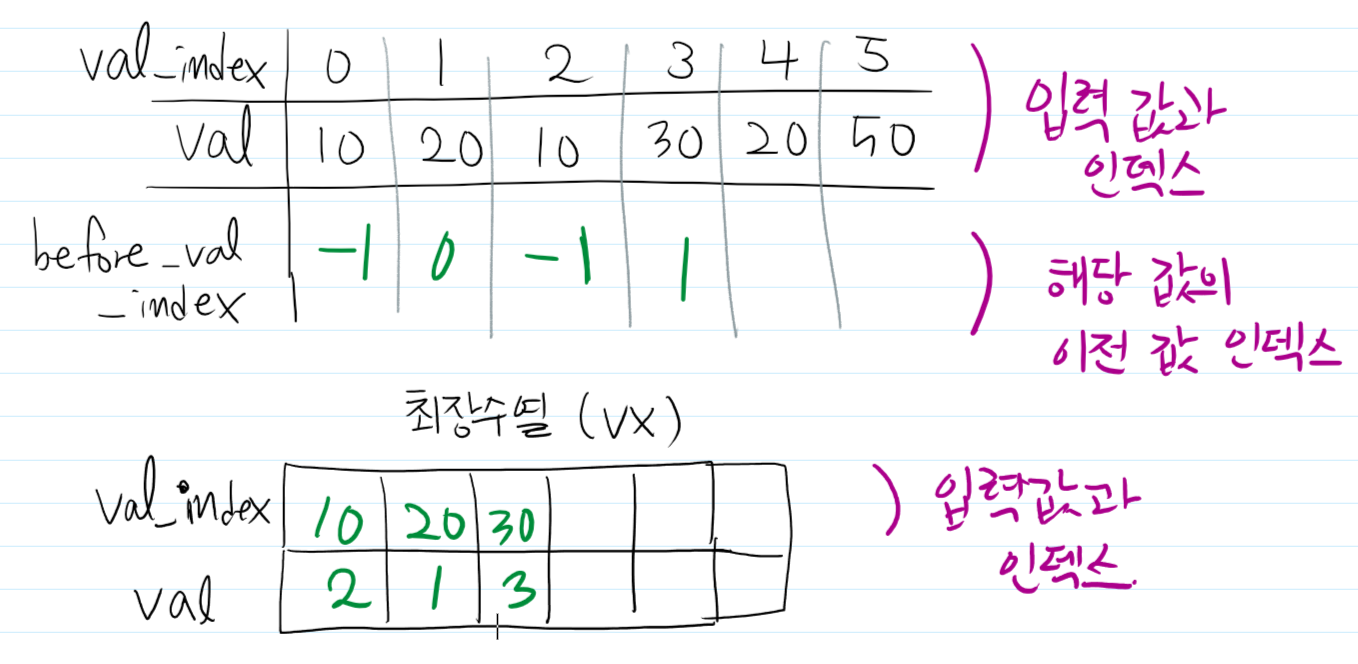 val_index 0 1 2 3 4 5
val 10 20 10 30 20 50
입력 값과
인덱스
before_val
_index
-1 0 -1 1
해당 값의
이전 값 인덱스
최장수열 (VX)
val_index 10 20 30
val 2 1 3
입력값과
인덱스.